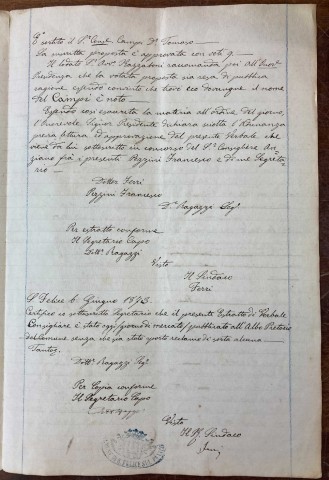 È sortito il Sr. Consr. Campi Dr. Tomaso.
La suddetta proposta è approvata con voti 9. —
Il lodato Sr. Avv. Mazzatoni raccomanda poi all'Onor.
Presidenza che la votata proposta sia resa di pubblica
ragione essendo constante che dove eco dovunque il nome
del Campi è noto. —
Essendo così esaurita la materia all'ordine del giorno,
l'Onorevole Signor Presidente dichiara sciolta l'Adunanza
previa lettura ed approvazione del presente Verbale che
viene da lui sottoscritto in concorso del Sr. Consigliere An-
ziano fra i presenti Pizzini Francesco e di me Segreta-
rio —
Dottor Ferri
Pizzini Francesco
Dr. Ragazzi Segr.
Per estratto conforme
Il Segretario Capo
Dottr. Ragazzi
Visto
Il Sindaco
Ferri
S. Felice 6 Giugno 1873.
Certifico io sottoscritto Segretario che il presente Estratto di Verbale
Consigliare è stato oggi (giorno di mercato) pubblicato all'Albo Pretorio
del Comune senza che sia stato sporto reclamo di sorta alcuna.
Dottr. Ragazzi Segr.
Per Copia conforme
Il Segretario Capo
Visto
Il ff. Sindaco